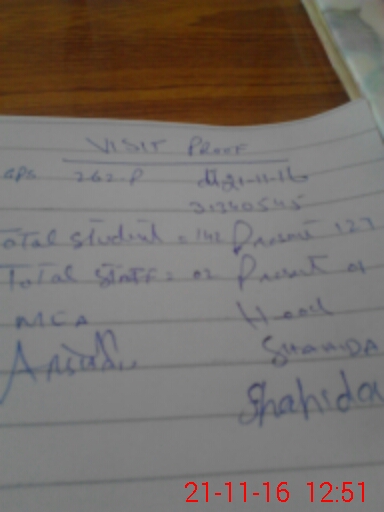 VISIT PROOF
GPS 262-P dt 21-11-16
31340545
Total Student = 142 Present 127
Total Staff = 02 Present 01
MCA Head
SHAHIDA
Shahida
21-11-16 12:51